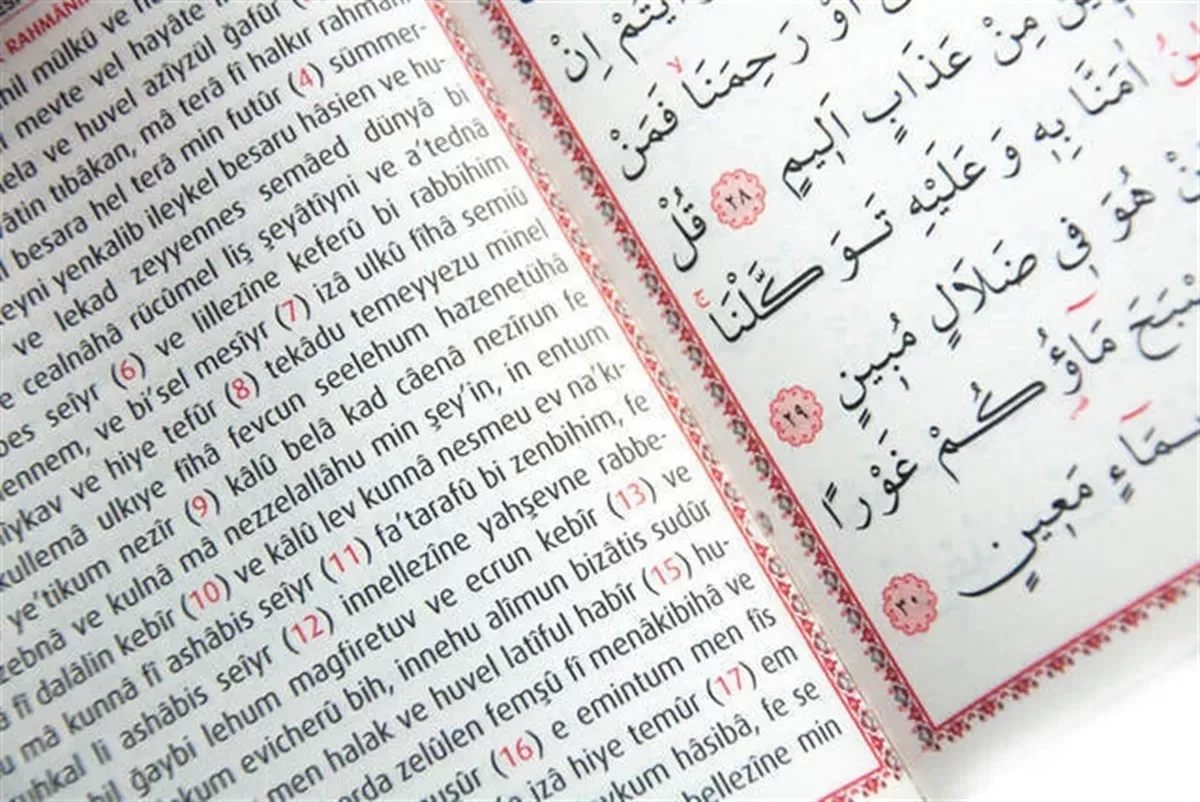 RAHMÂNİ
mülkü ve
mevte vel hayâte
ve huvel azîyzül ğafûr (
tıbâkan, mâ terâ fî halkır rahmân
besara hel terâ min futûr (4) sümmer-
yenkalib ileykel besaru hâsien ve hu-
ve lekad zeyyennes semâed dünyâ bi
cealnâhâ rücûmel liş şeyâtîyni ve a'tednâ
seîyr (6) ve lillezîne keferû bi rabbihim
ennem, ve bi'sel mesîyr (7) izâ ulkû fîhâ semiû
ve hiye tefûr (8) tekâdu temeyyezu minel
kullemâ ulkıye fîhâ fevcun seelehum hazenetühâ
ye'tikum nezîr (9) kâlû belâ kad câenâ nezîrun fe
zebnâ ve kulnâ mâ nezzelallâhu min şey'in, in entum
fî dalâlin kebîr (10) ve kâlû lev kunnâ nesmeu ev na'kı-
mâ kunnâ fî ashâbis seîyr (11) fa'tarafû bi zenbihim, fe
uhkal li ashâbis seîyr (12) innellezîne yahşevne rabbe-
ğaybi lehum magfiretuv ve ecrun kebîr (13) ve
evicherû bih, innehu alîmun bizâtis sudûr
men halak ve huvel latîful habîr (15) hu-
arda zelûlen femşû fî menâkibihâ ve
(16) e emintum men fîs
izâ hiye temûr (17) em
hâsibâ, fe se
bellezîne min
اِنْ
اَوْ رَحِمَنَا فَمَنْ
مِنْ عَذَابٍ اَلِيمٍ ٢٨ قُلْ
اٰمَنَّا بِهٖ وَ عَلَيْهِ تَوَكَّلْنَا
هُوَ فِى ضَلَالٍ مُبِينٍ ٢٩
مَاؤُكُمْ غَوْرًا
مَعِينٍ ٣٠